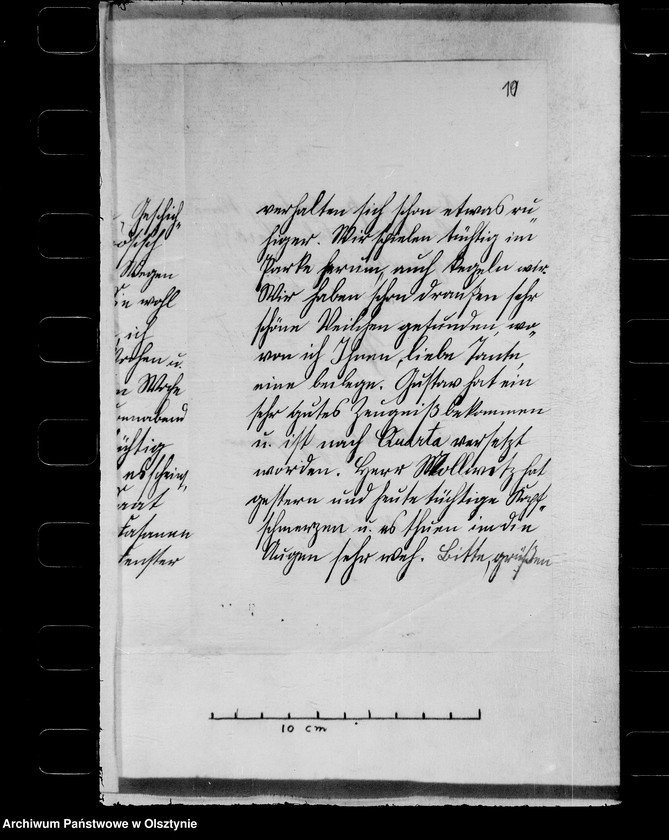 10
verhalten sich schon etwas ru„
higer. Wir spielen tüchtig im
Parke herum, auch kegeln wir.
Wir haben schon draußen sehr
schöne Veilchen gefunden, wo„
von ich Ihnen, liebe Tante,
eine beilege. Gustav hat ein
sehr gutes Zeugniß bekommen
u. ist nach Quarta versetzt
worden. Herr Mollwetz hat
gestern und heute tüchtige Kopf„
schmerzen u. es thuen im die
Augen sehr weh. Bitte, grüßen
Geschich„
Wegen
wohl
ich
u.
Woche
nnabend
üchtig
es scheint,
aat
Fasanen
Fenster
10 cm
Archiwum Państwowe w Olsztynie